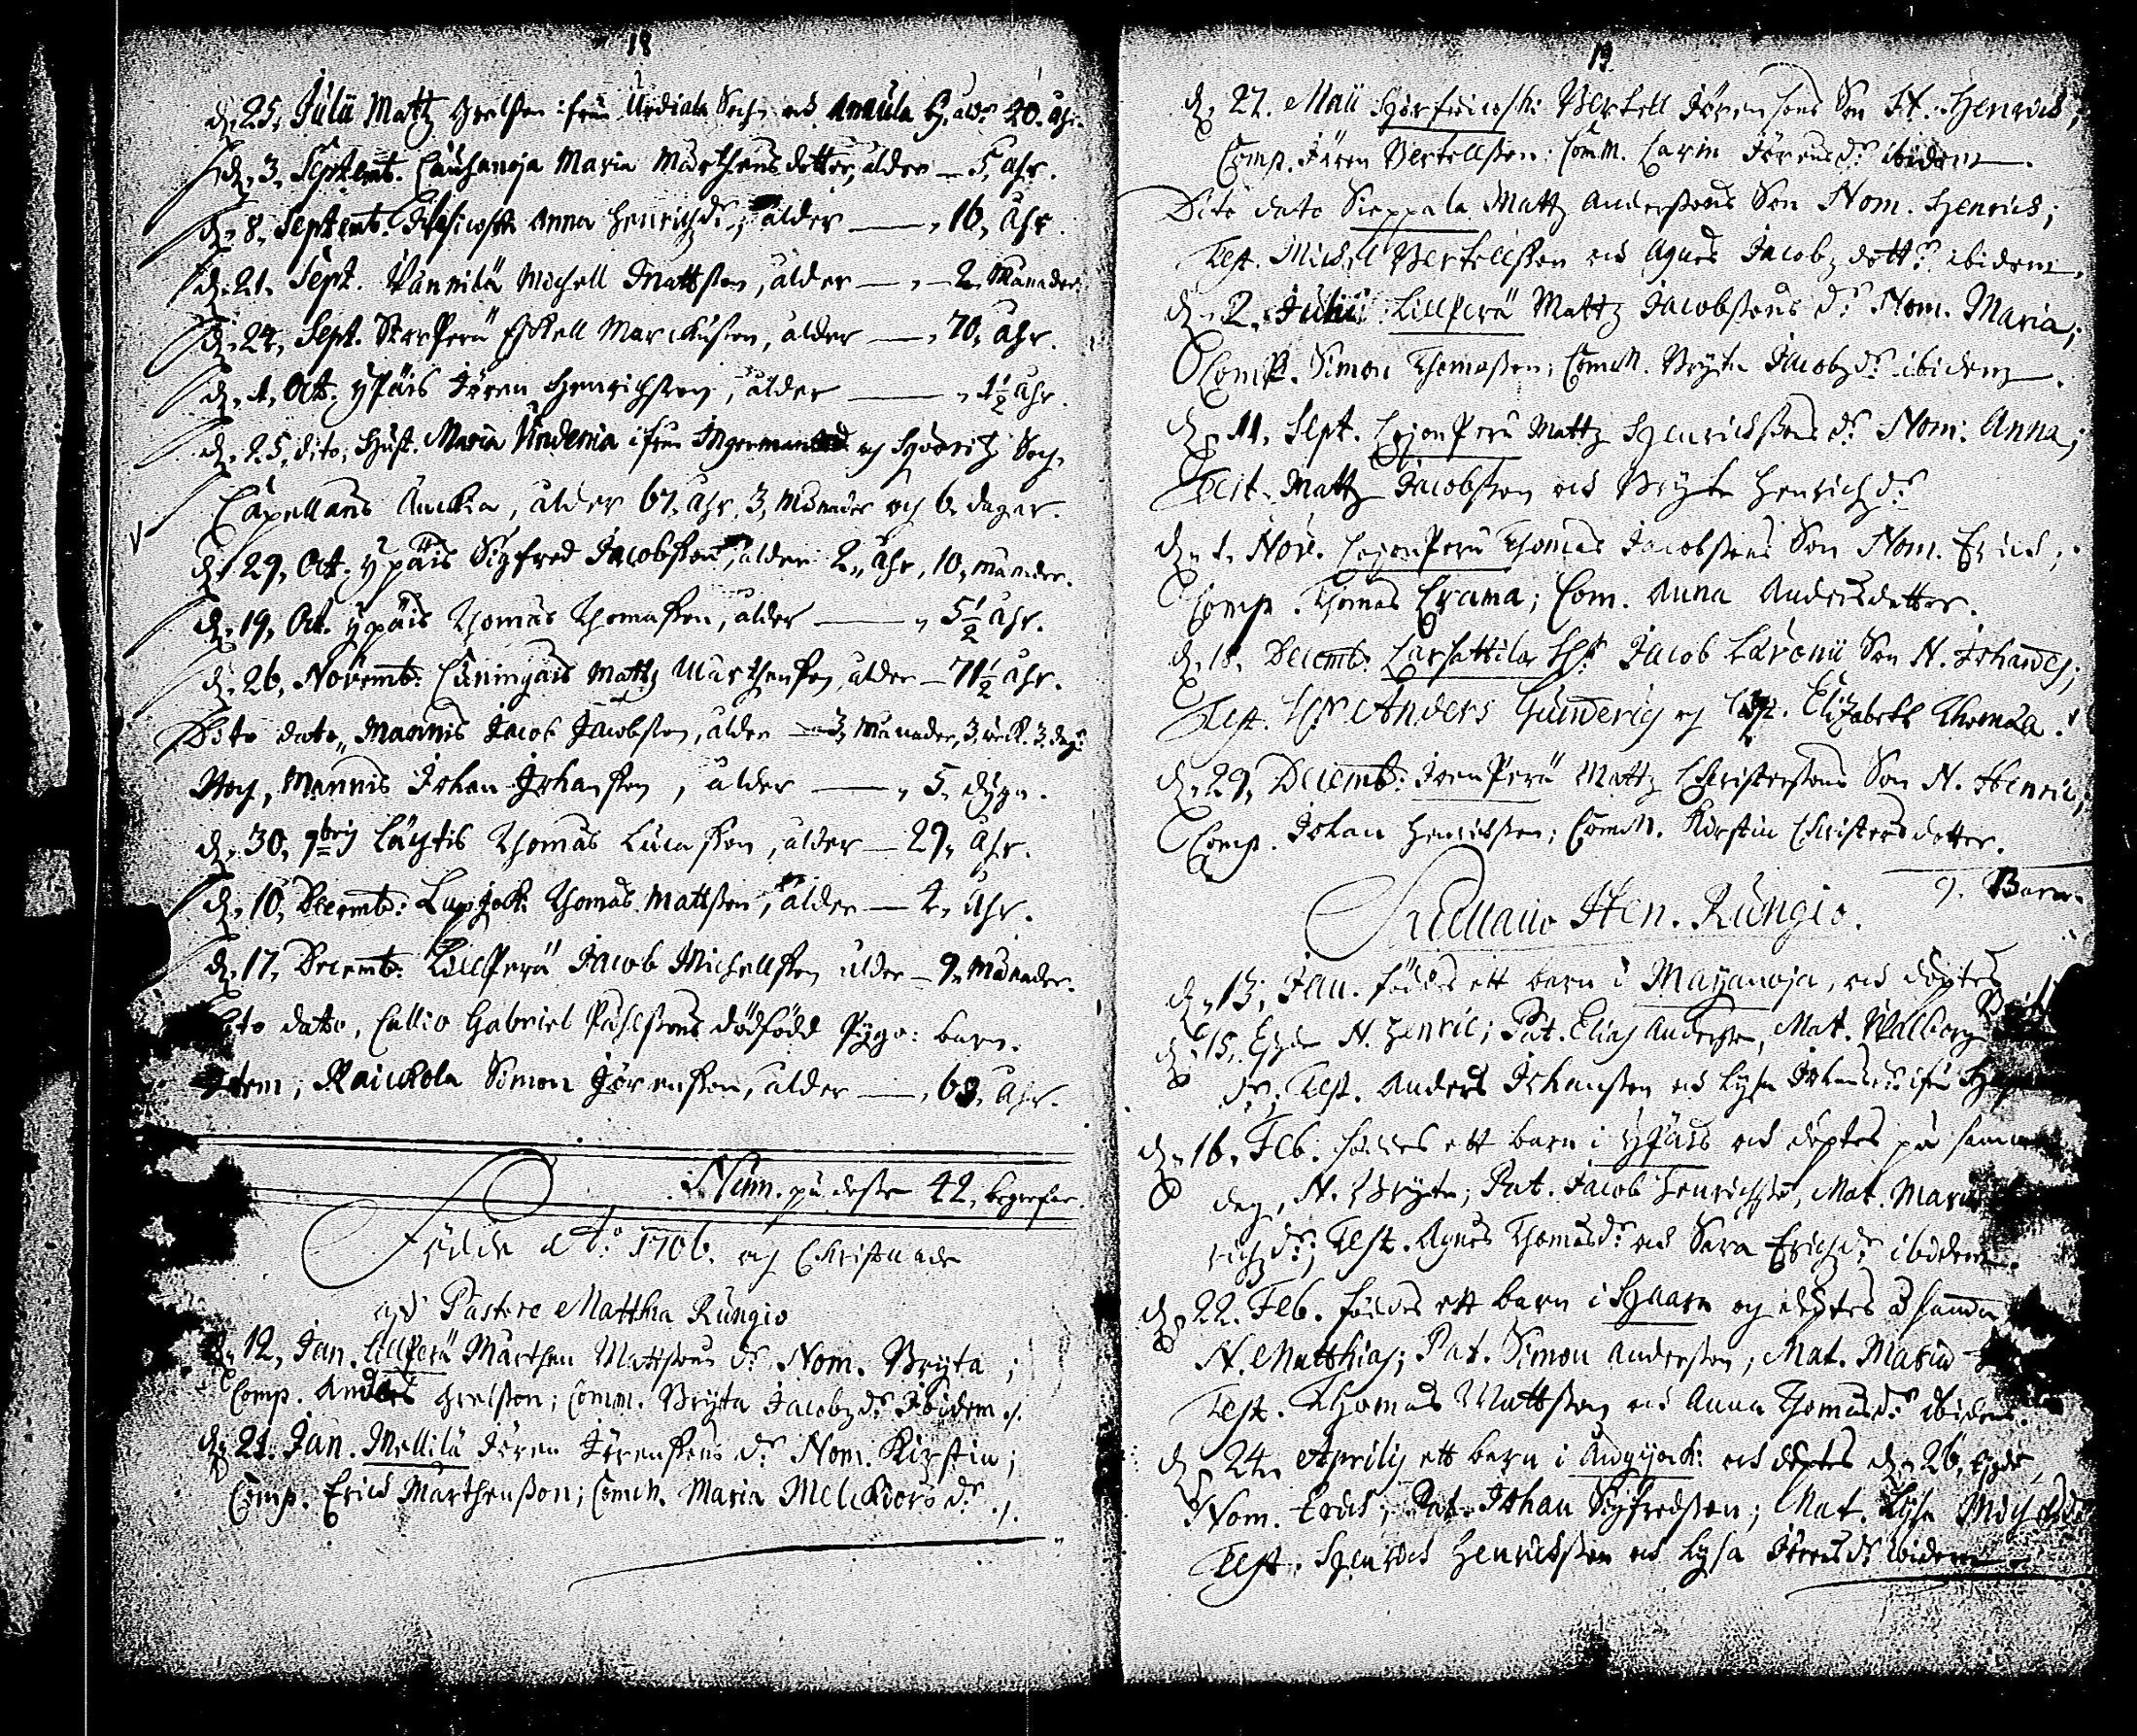 18
d. 25. Julii Mattz Grelsson ifrån Urdiala Sochn och Annula by, åld. 40. åhr.
d. 3. Septemb. Cauhanoja Maria Mårthensdotter, ålder — 5. åhr.
d. 8. Septemb. Anna Henrichzdr, ålder — 16. åhr.
d. 21. Sept. Pannila Michell Mattsson, ålder — 2. Månader.
d. 24. Sept. StorPerä Eskell Marckusson, ålder — 70. åhr.
d. 1. Oct. Ypäis Jören Henrichsson, ålder — 1½ åhr.
d. 25. dito, Hust. Maria Vindenia ifrån Ingermanland och Sochn.
Capellans Änckia, ålder 67. åhr, 3. Månader och 6. dagar.
d. 29. Oct. Ypäis Sigfred Jacobsson, ålder 2. åhr, 10. månader.
d. 19. Oct. Ypäis Thomas Thomasson, ålder — 5½ åhr.
d. 26. Novemb. Cuningais Mattz Mårthensson, ålder — 71½ åhr.
Dito dato, Mannis Jacob Jacobsson, ålder — 3. Månader, 3. weck. 3. dag.
Noch, Mannis Johan Johansson, ålder — 5. dygn.
d. 30. 9bris Läytis Thomas Lucasson, ålder — 29. åhr.
d. 10. Decemb: Lupjok: Thomas Mattsson, ålder — 4. åhr.
d. 17. Decemb: LillPerä Jacob Michellsson ålder — 9. Månader.
Dito datto, Callio Gabriel Påhlssons dödfödd Pyge: barn.
Item, Raickola Simon Jörensson, ålder — 63. åhr.
Num. på desse 42, begrafne.
Födde Ao. 1706. och Christnade
af Pastore Matthia Rungio
d. 12. Jan. LillPerä Mårthen Mattssons dr. Nom. Bryta;
Comp. Anders Grelsson; Comm. Bryta Jacobzdr. Ibidem.
d. 21. Jan. Mellilä Jören Jörenssons dr. Nom. Kirstin;
Comp. Erich Mårthensson; Comm. Maria Melckiorsdr.
19
d. 27. Maii Bertell Jörenssons Son N. Henrich;
Comp. Jören Bertellsson: Comm. Carin Jörensdr. ibidem.
Dito dato Sieppala Mattz Anderssons Son Nom. Henrich;
Test. Michel Bertellsson och Agnes Jacobzdottr. ibidem.
d. 2. Julii LillPerä Mattz Jacobssons dr. Nom. Maria;
Comp. Simon Thomasson; Comm. Bryta Jacobzdr. ibidem.
d. 11. Sept. LejonPerä Mattz Henrichssons dr. Nom: Anna;
Test. Mattz Jacobsson och Bryta Henrichzdr.
d. 1. Nov. LejonPerä Thomas Jacobssons Son Nom. Erich;
Comp. Thomas; Com. Anna Andersdotter.
d. 18. Decemb: Larsattila Jacob Laronii Son N. Johannes;
Test. Hr Anders Gunderus och Elizabeth Thomæa.
d. 29. Decemb: IvenPerä Mattz Christerssons Son N. Henric;
Comp. Johan Henrichsson; Comm. Kirstin Christersdotter.
9. Barn.
Sacellano Hen. Rungio.
d. 13. Jan. föddes ett barn i Mayanoja, och döptes
d. 15. Ejusd. N. Henric; Pat. Elias Andersson, Mat. Walborg
dr; Test. Anders Johansson och Lysa Johansdr. ifrån
d. 16. Feb. föddes ett barn i Ypäis och döptes på samma
dag, N. Bryta; Pat. Jacob Henrichsson, Mat. Maria
richzdr; Test. Agnes Thomasdr. och Sara Erichzdr. ibidem.
d. 22. Feb. föddes ett barn i och döptes d. samma
N. Matthias; Pat. Simon Andersson; Mat. Maria
Test. Thomas Mattsson och Anna Thomasdr. ibidem.
d. 24. Aprilis ett barn i och döptes den 26. Ejusd.
Nom. Erich; Pat. Johan Sigfredsson; Mat. Lysa
Test. Henrich Henrichsson och Lysa Jörensdr. ibidem